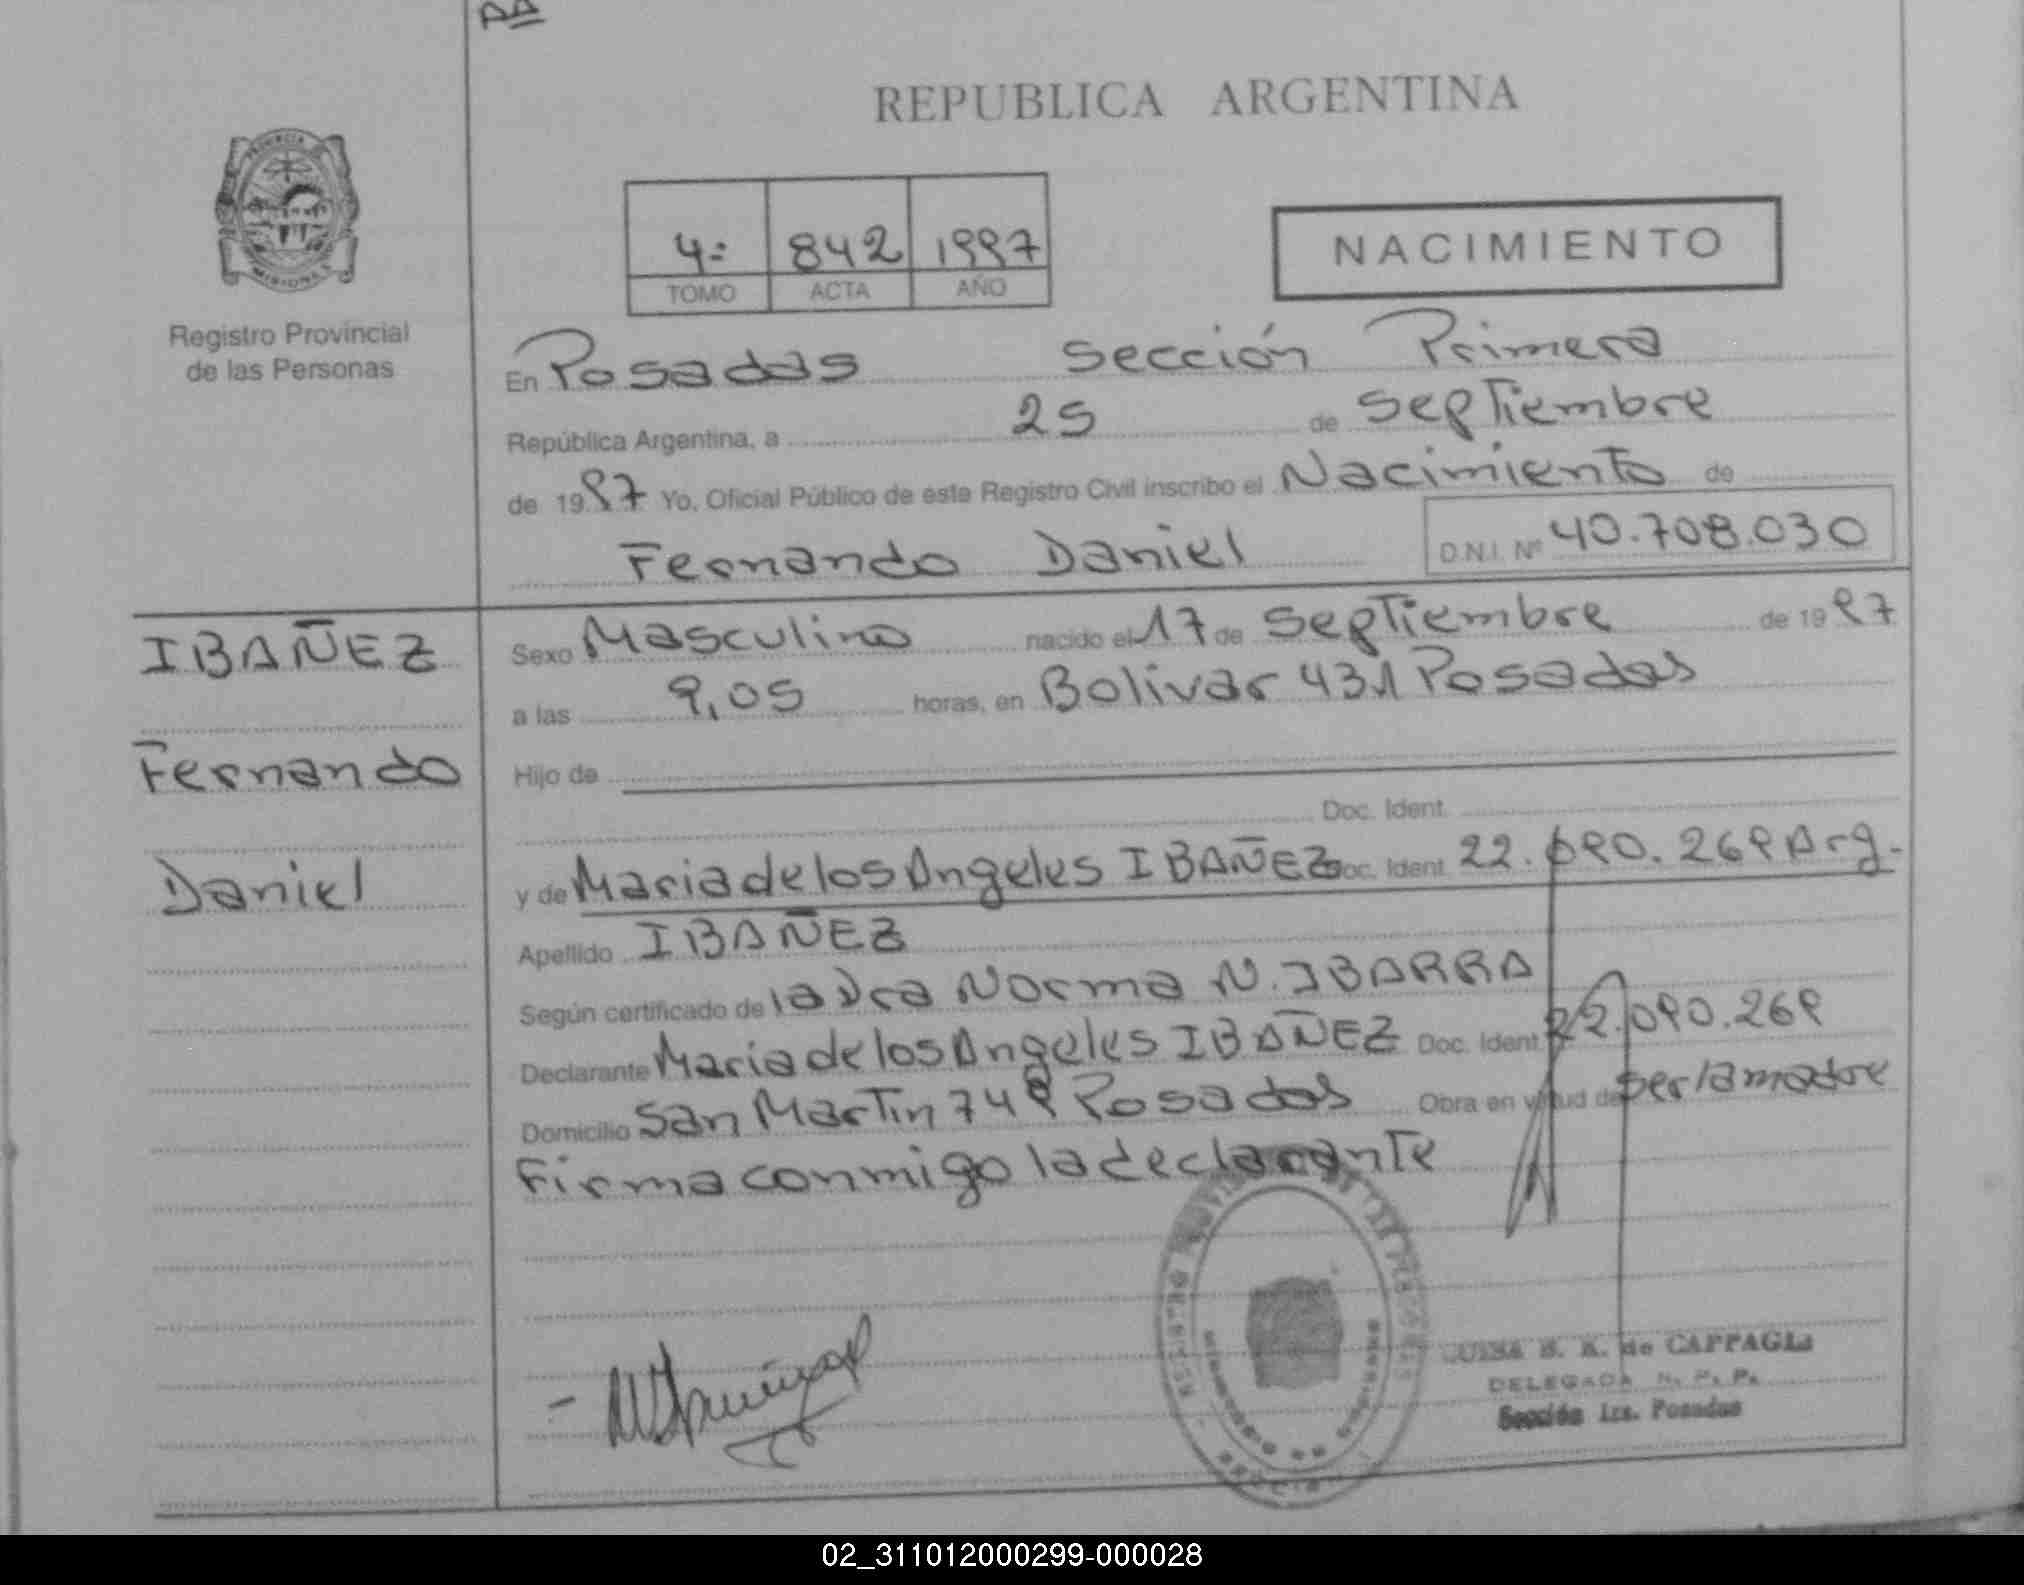 REPUBLICA ARGENTINA
Registro Provincial
de las Personas
4: 842 1997
TOMO ACTA AÑO
NACIMIENTO
En Posadas sección Primera
República Argentina, a 25 de septiembre
de 1997 Yo, Oficial Público de este Registro Civil inscribo el Nacimiento de
Fernando Daniel
D.N.I. Nº 40.708.030
IBAÑEZ
Fernando
Daniel
Sexo Masculino nacido el 17 de septiembre de 1997
a las 9,05 horas, en Bolivar 431 Posadas
Hijo de
Doc. Ident.
y de Maria de los Angeles IBAÑEZ Doc. Ident. 22.090.269 Arg.-
Apellido IBAÑEZ
Según certificado de la Dra Norma N. IBARRA
Declarante Maria de los Angeles IBAÑEZ Doc. Ident. 22.090.269
Domicilio San Martin 749 Posadas Obra en virtud de ser la madre
Firma conmigo la declarante
S. A. de CAPPAGLI
DELEGADA R. P. P.
Sección 1ra. Posadas
02_311012000299-000028